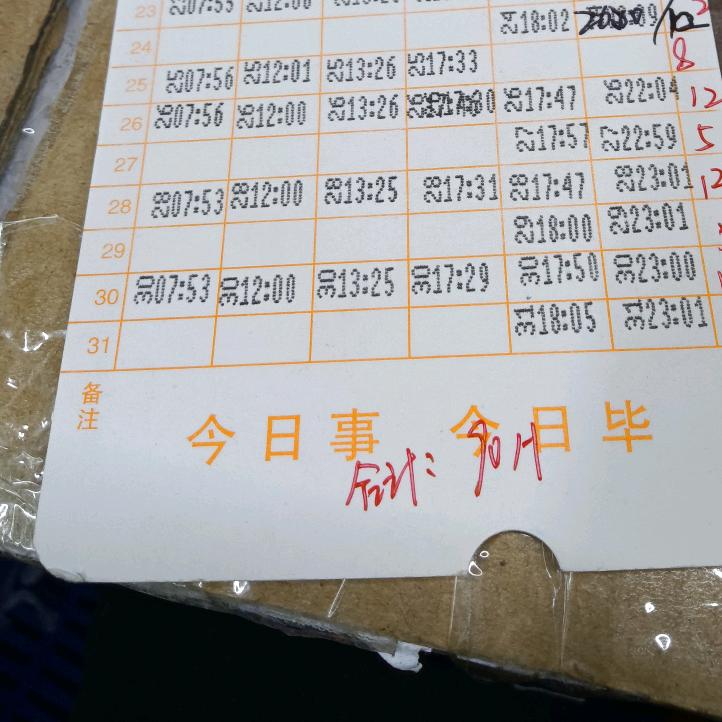 23 23 07:53 23 12:00
24 24 18:02
25 25 07:56 25 12:01 25 13:26 25 17:33 8
26 26 07:56 26 12:00 26 13:26 26 17:47 26 22:04 12
27 27 17:57 27 22:59 5
28 28 07:53 28 12:00 28 13:25 28 17:31 28 17:47 28 23:01 12
29 29 18:00 29 23:01
30 30 07:53 30 12:00 30 13:25 30 17:29 30 17:50 30 23:00
31 31 18:05 31 23:01
备注
今日事 今日毕
合计: 90H